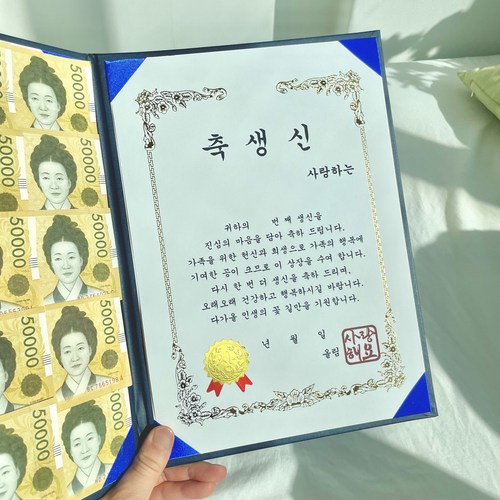 축 생 신
사랑하는
귀하의 번 째 생신을
진심의 마음을 담아 축하 드립니다.
가족을 위한 헌신과 희생으로 가족의 행복에
기여한 공이 크므로 이 상장을 수여 합니다.
다시 한 번 더 생신을 축하 드리며,
오래오래 건강하고 행복하시길 바랍니다.
다가올 인생의 꽃 길만을 기원합니다.
년 월 일
올림
사랑
해요
50000
50000
50000
50000
50000
50000